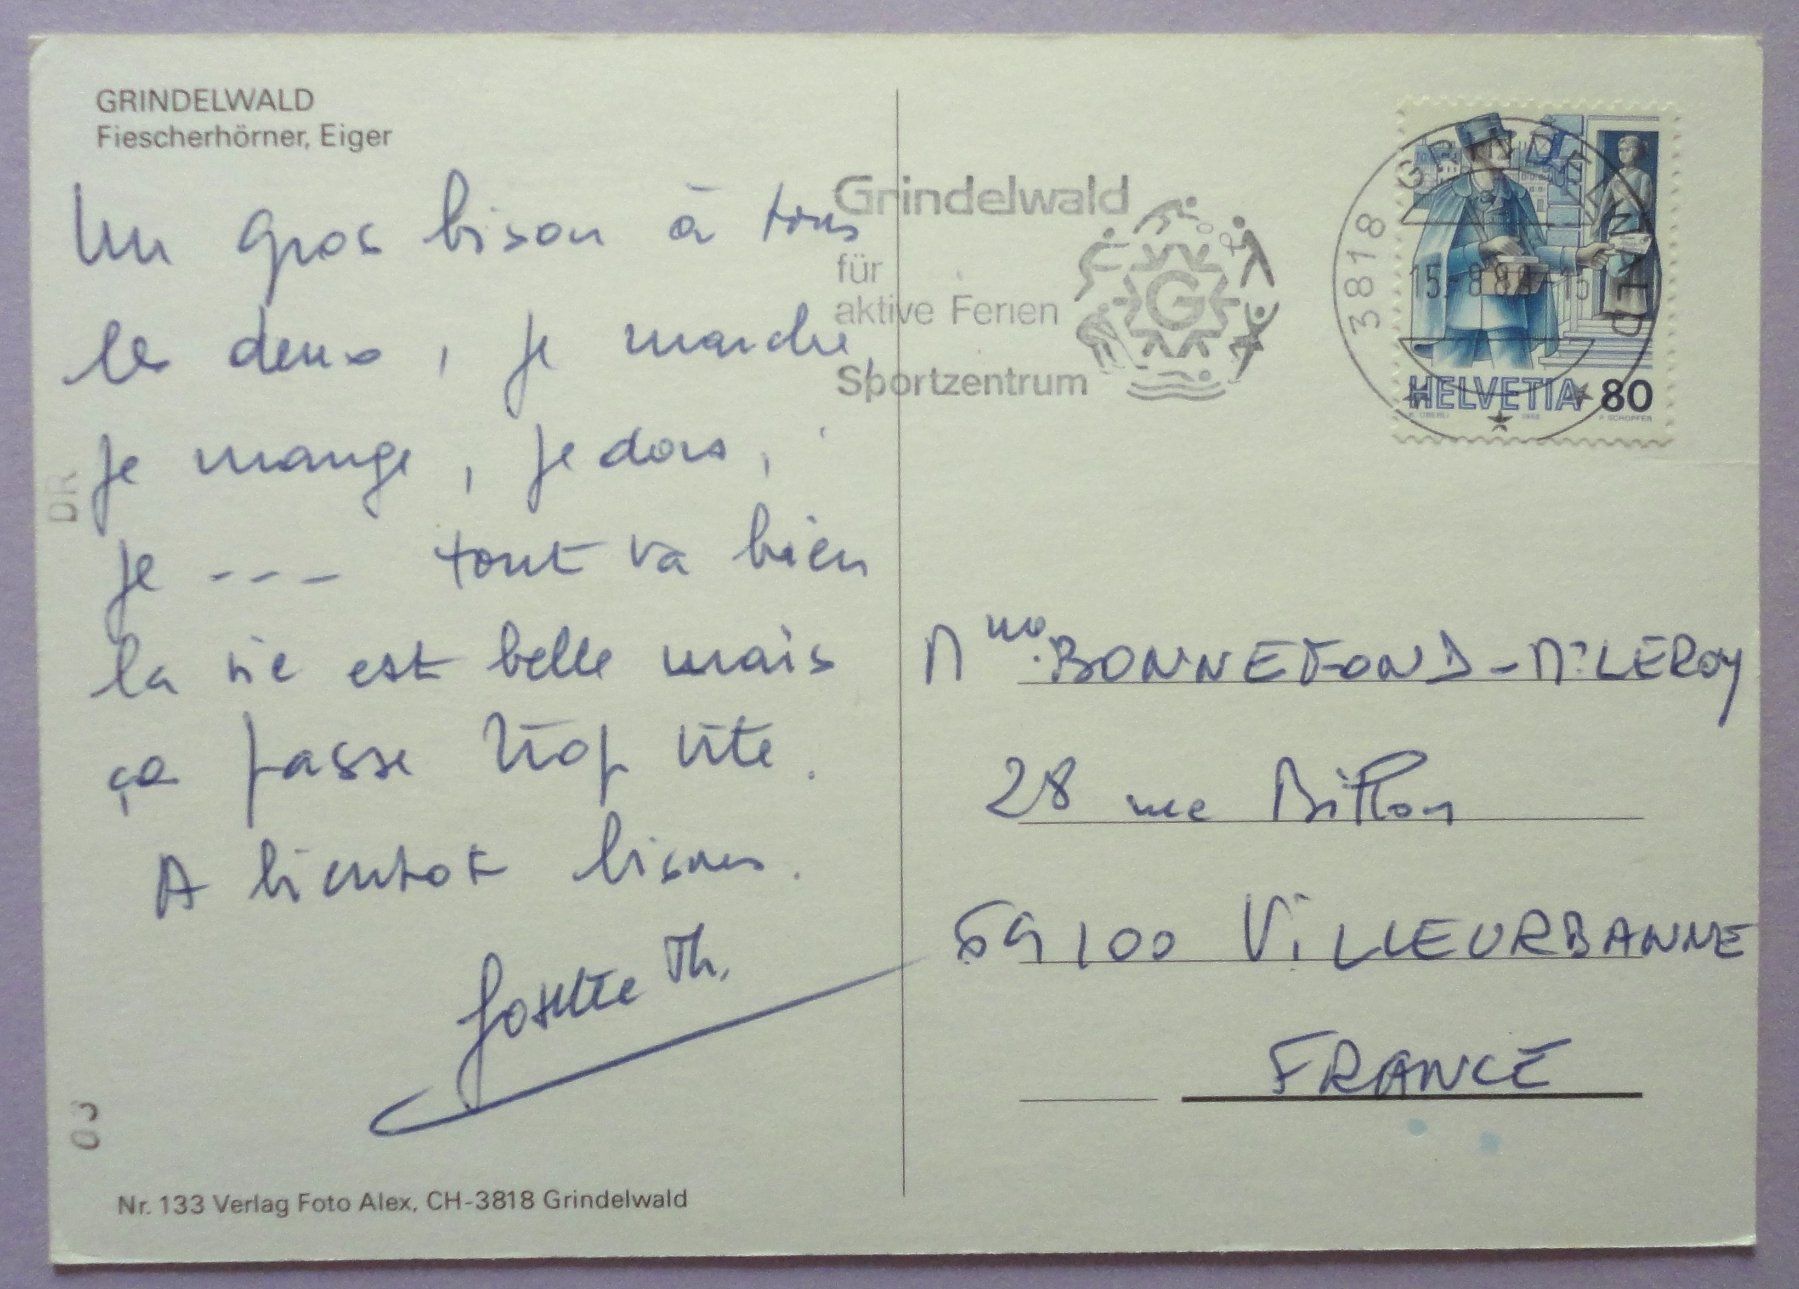 GRINDELWALD
Fiescherhörner, Eiger
Un gros bison à tous
les deux, je marche,
je mange, je dors,
je --- tout va bien
la vie est belle mais
ça passe trop vite.
A bientot bisous.
Josette Th.
Nr. 133 Verlag Foto Alex, CH-3818 Grindelwald
DR
Grindelwald
für
aktive Ferien
Sportzentrum
G
3818 GRINDELWALD
15.-8.8
-15
HELVETIA 80
Mme BONNEFOND - Mr LEROY
28 rue Billon
69100 ViLLEURBANNE
FRANCE